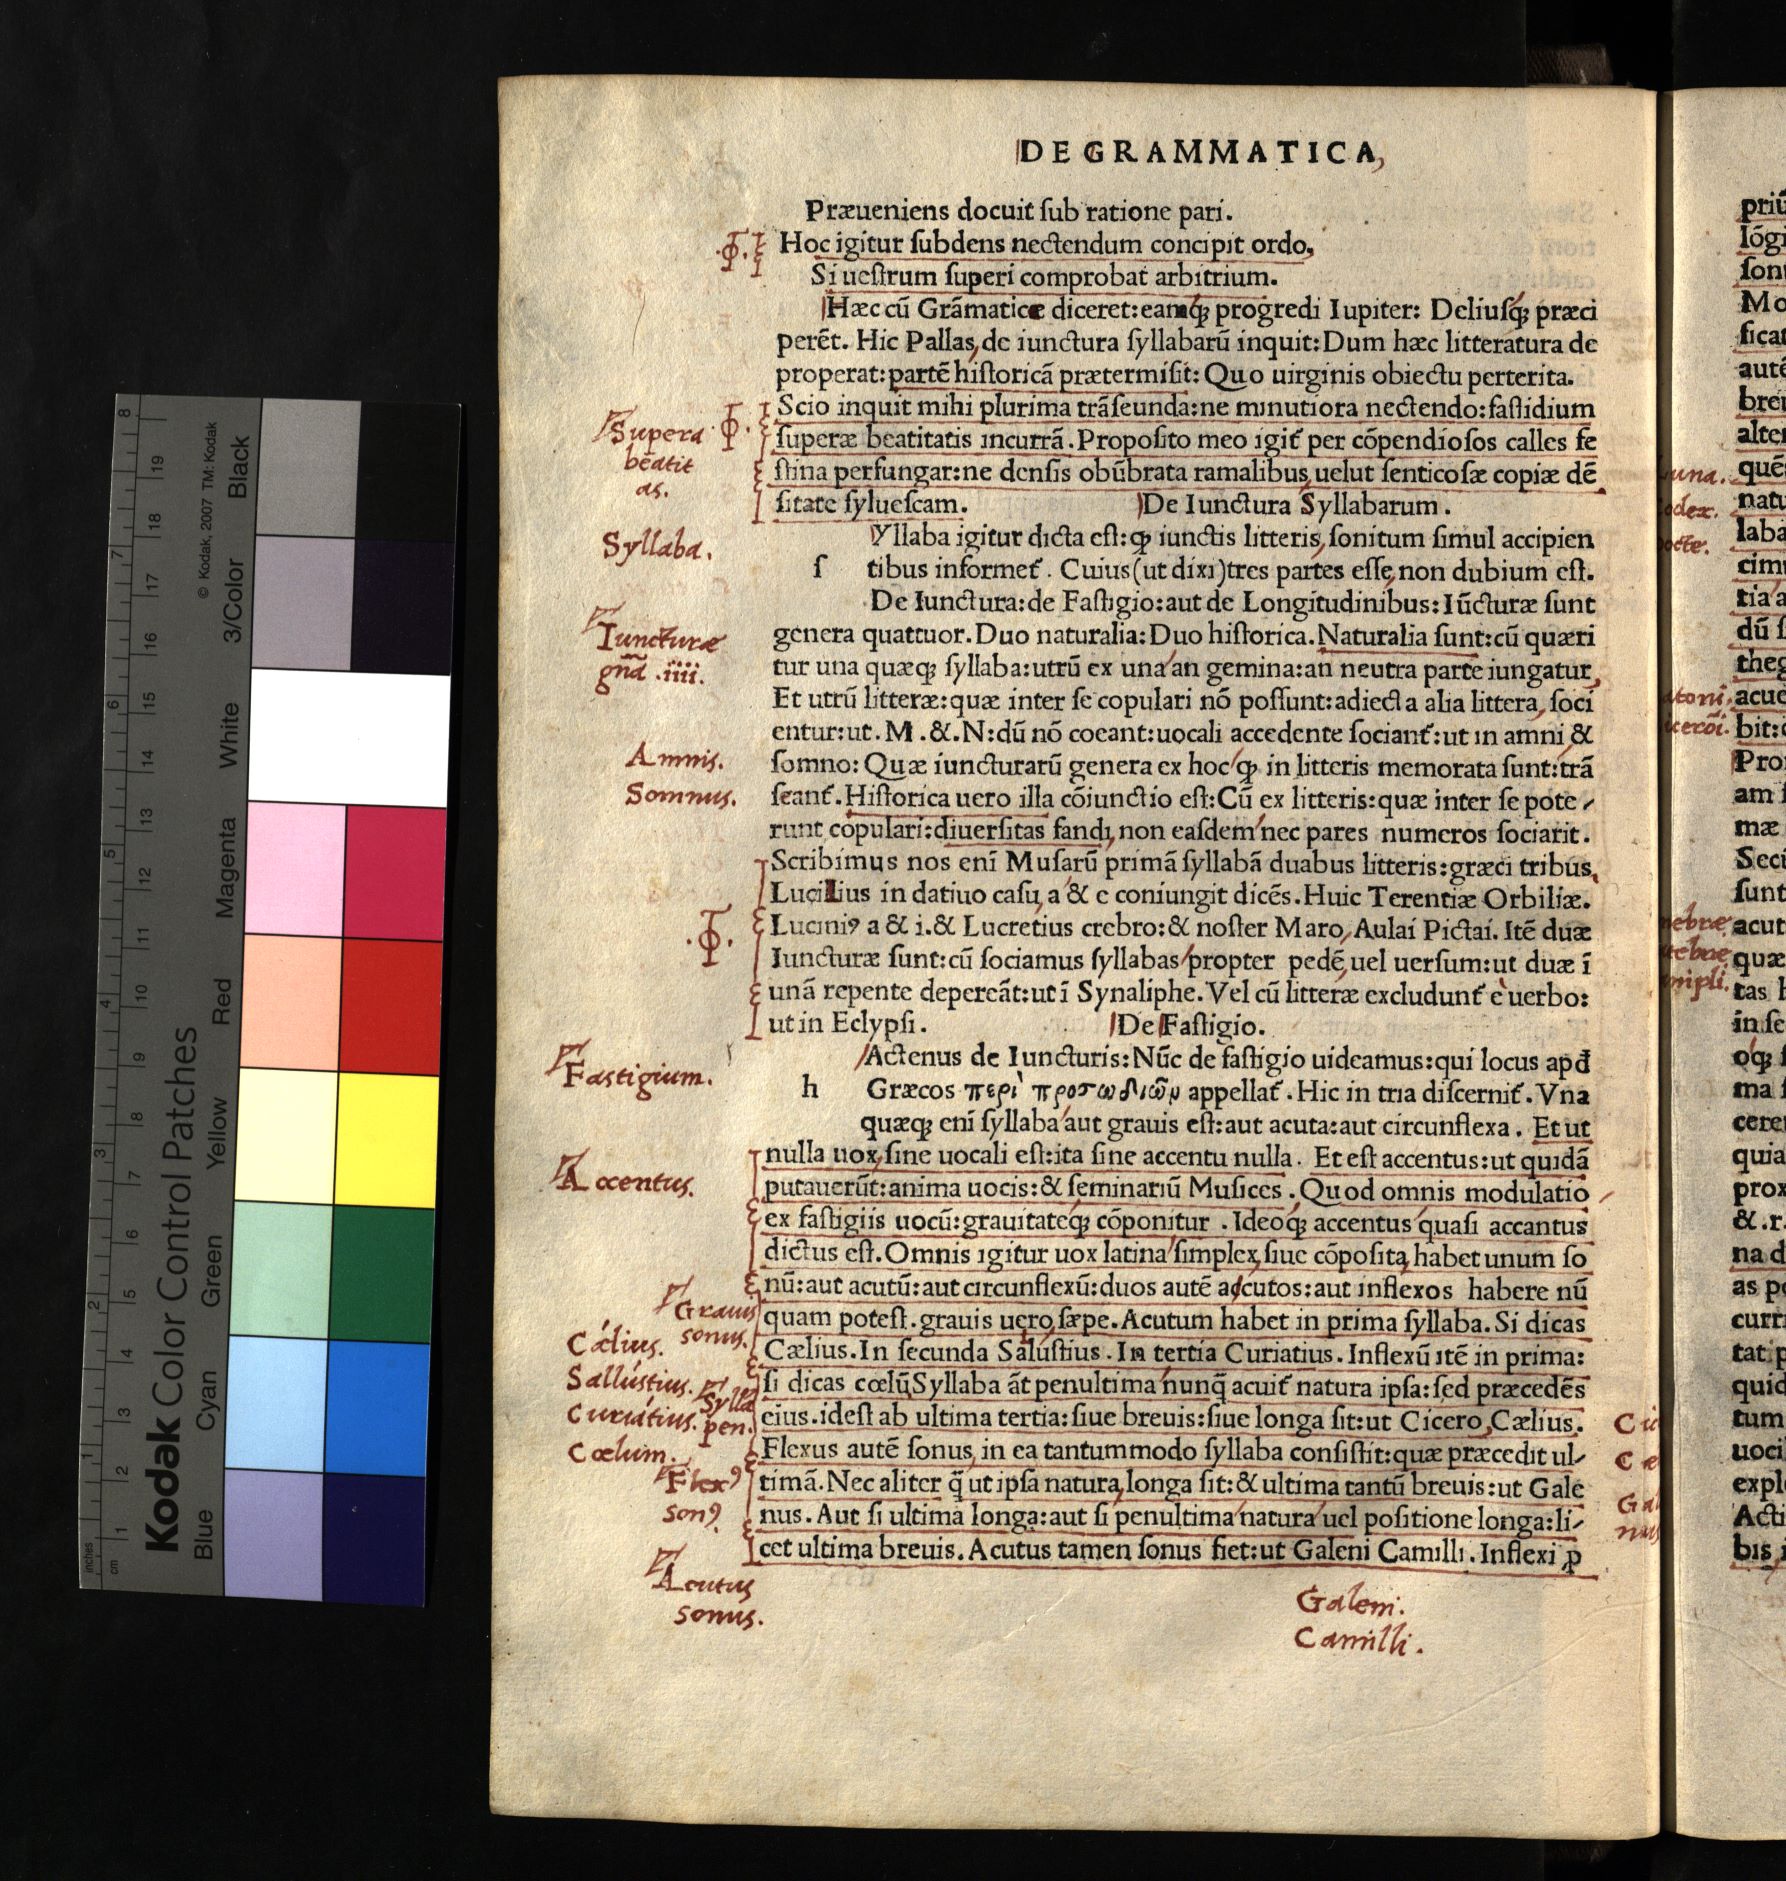 DE GRAMMATICA,
Præueniens docuit ſub ratione pari.
Hoc igitur ſubdens nectendum concipit ordo,
Si ueſtrum ſuperi comprobat arbitrium.
Hæc cū Grāmaticæ diceret:eamqꝫ progredi Iupiter: Deliuſqꝫ præci
perēt. Hic Pallas,de iunctura ſyllabarū inquit:Dum hæc litteratura de
properat:partē hiſtoricā prætermiſit: Quo uirginis obiectu perterita.
Scio inquit mihi plurima trāſeunda:ne minutiora nectendo:faſtidium
ſuperæ beatitatis incurrā.Propoſito meo igit᷑ per cōpendioſos calles fe
ſtina perfungar:ne denſis obūbrata ramalibus,uelut ſenticoſæ copiæ dē
ſitate ſylueſcam.
De Iunctura Syllabarum.
Yllaba igitur dicta eſt:ꝙ iunctis litteris,ſonitum ſimul accipien
ſ tibus informet᷑. Cuius(ut dixi)tres partes eſſe,non dubium eſt.
De Iunctura:de Faſtigio:aut de Longitudinibus:Iūcturæ ſunt
genera quattuor.Duo naturalia:Duo hiſtorica.Naturalia ſunt:cū quæri
tur una quæqꝫ ſyllaba:utrū ex una an gemina:an neutra parte iungatur,
Et utrū litteræ:quæ inter ſe copulari nō poſſunt:adiecta alia littera, ſoci
entur:ut.M.&.N:dū nō coeant:uocali accedente ſociant᷑:ut in amni,&
ſomno: Quæ iuncturarū genera ex hoc ꝙ in litteris memorata ſunt:trā
ſeant᷑.Hiſtorica uero illa cōiunctio eſt:Cū ex litteris:quæ inter ſe pote-
runt copulari:diuerſitas fandi,non eaſdem nec pares numeros ſociarit.
Scribimus nos enī Muſarū primā ſyllabā duabus litteris:græci tribus.
Lucilius in datiuo caſu,a & e coniungit dicēs.Huic Terentiæ Orbiliæ.
Luciniꝰ a & i.& Lucretius crebro:& noſter Maro,Aulai Pictai. Itē duæ
Iuncturæ ſunt:cū ſociamus ſyllabas propter pedē,uel uerſum:ut duæ ī
unā repente depereāt:ut ī Synaliphe.Vel cū litteræ excludunt᷑ e uerbo:
ut in Eclypſi.
De Faſtigio.
Actenus de Iuncturis:Nūc de faſtigio uideamus:qui locus apđ
h Græcos περὶ προσωδιῶν appellat᷑. Hic in tria diſcernit᷑. Vna
quæqꝫ enī ſyllaba aut grauis eſt:aut acuta:aut circunflexa. Et ut
nulla uox,ſine uocali eſt:ita ſine accentu nulla. Et eſt accentus:ut quidā
putauerūt:anima uocis:& ſeminariū Muſices.Quod omnis modulatio
ex faſtigiis uocū:grauitateqꝫ cōponitur.Ideoqꝫ accentus quaſi accantus
dictus eſt.Omnis igitur uox latina ſimplex,ſiue cōpoſita,habet unum ſo
nū:aut acutū:aut circunflexū:duos autē accutos:aut inflexos habere nū
quam poteſt.grauis uero,ſæpe.Acutum habet in prima ſyllaba.Si dicas
Cælius.In ſecunda Saluſtius.In tertia Curiatius.Inflexū itē in prima:
ſi dicas cœlū,Syllaba āt penultima nunq̄ acuit᷑ natura ipſa:ſed præcedēs
eius.ideſt ab ultima tertia:ſiue breuis:ſiue longa ſit:ut Cicero,Cælius.
Flexus autē ſonus,in ea tantummodo ſyllaba conſiſtit:quæ præcedit ul-
timā.Nec aliter q̄ ut ipſa natura,longa ſit:& ultima tantū breuis:ut Gale
nus.Aut ſi ultima longa:aut ſi penultima natura uel poſitione longa:li-
cet ultima breuis.Acutus tamen ſonus fiet:ut Galeni Camilli.Inflexi ꝓ
Supera
beatit
as.
Syllaba.
Iuncturæ
gn̄a .iiii.
Amnis.
Somnus.
Fastigium.
Accentus.
Grauis
sonus.
Cǽlius.
Sallústius.
Curiátius.
Cœlum.
Sylla
pen.
Flexꝰ
sonꝰ.
Acutus
sonus.
Galeni.
Camilli.
Kodak Color Control Patches
© Kodak, 2007 TM: Kodak
Blue Cyan Green Yellow Red Magenta White 3/Color Black
inches 1 2 3 4 5 6 7 8
cm 1 2 3 4 5 6 7 8 9 10 11 12 13 14 15 16 17 18 19